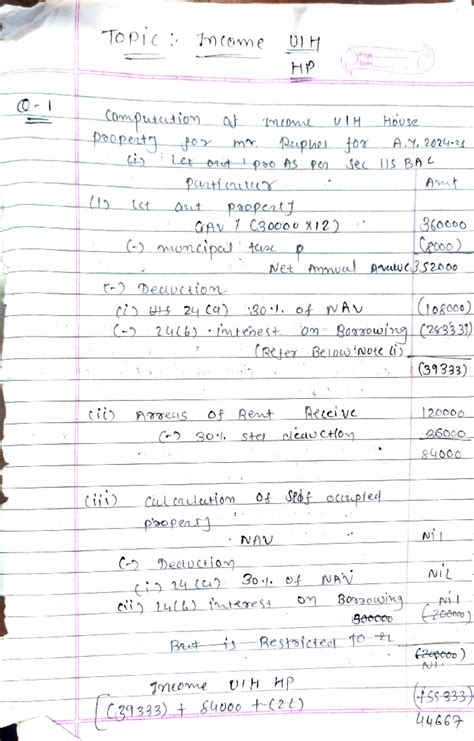 Topic :- Income U/H
HP
Page
Date
Q-1
Computation of Income U/H House
Property for mr. Raphel for A.Y. 2024-25
(i) Let out pro As per sec 115 BAC
Particular Amt
(1) Let out property
GAV (30000 X12) 360000
(-) muncipal taxe p (8000)
Net Annual value 352000
(-) Deduction
(i) 24(a) 30% of NAV (108000)
(-) 24(b) interest on Borrowing (283333)
(Refer Below Note (i)
(39333)
(ii) Arreas of Rent Receive 120000
(-) 30% std deduction 36000
84000
(iii) Calculation of Self occupied
property
NAV Nil
(-) Deduction
(i) 24(a) 30% of NAV NIL
(ii) 24(b) interest on Borrowing Nil
300000 (200000)
But is Restricted to
(200000)
Nil
Income U/H HP (155333)
(39333) + 84000 + 44667